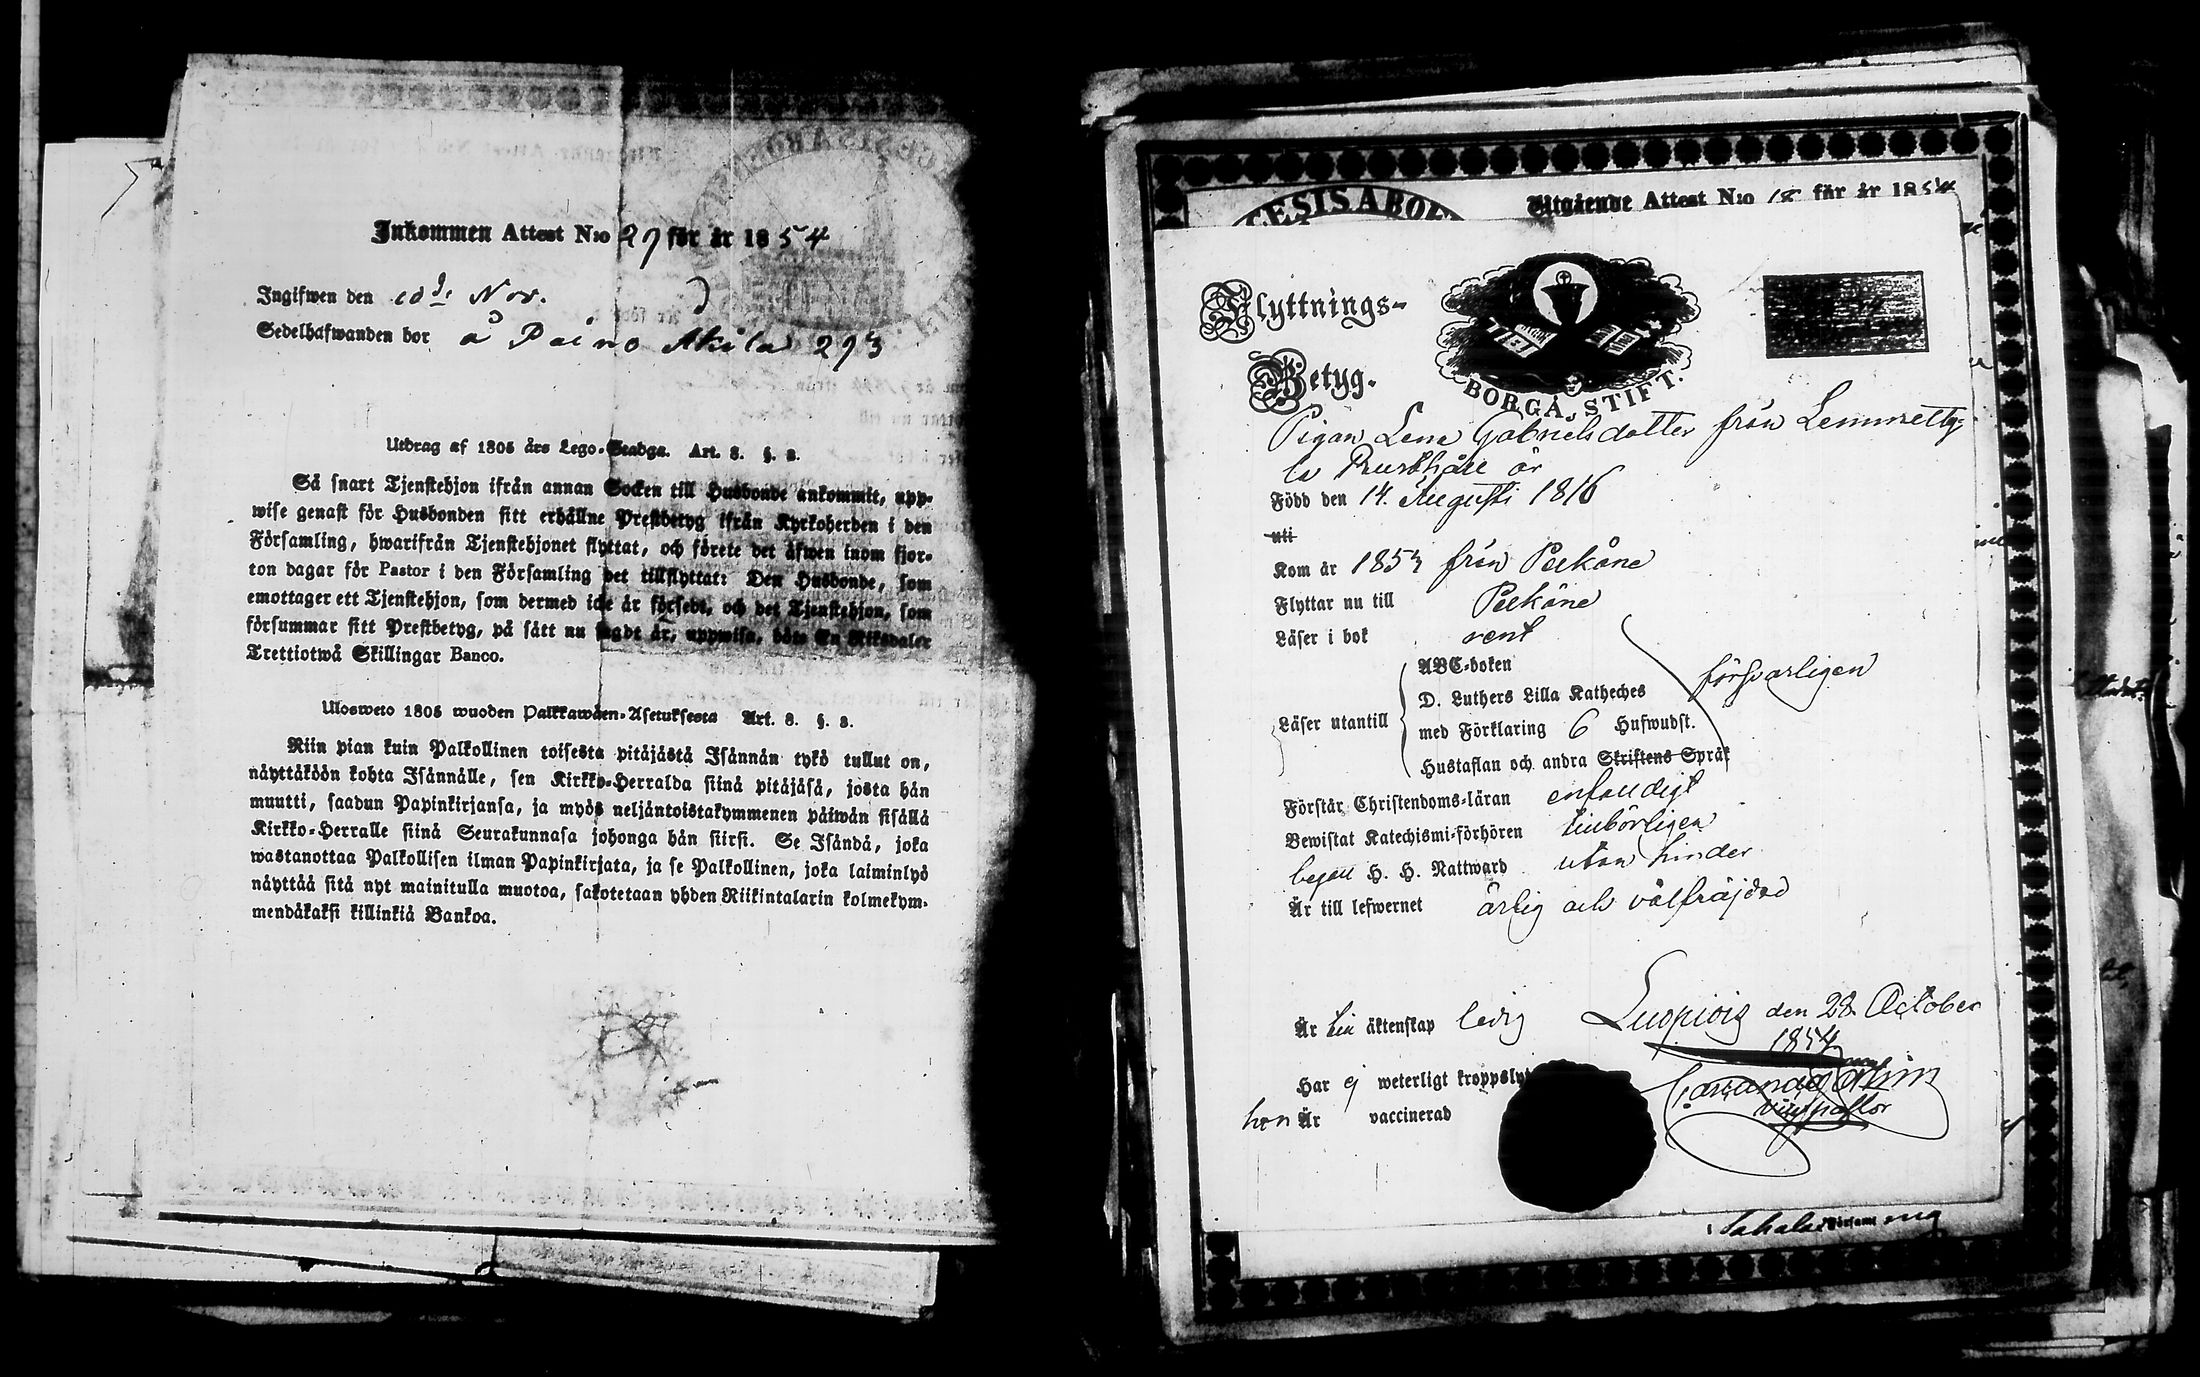 Inkommen Attest N:o 27 för år 1854
Ingifwen den 10de Nov.
Sedelhafwanden bor å Paino Akila 293
Utdrag af 1805 års Lego-Stadga. Art. 8. §. 2.
Så snart Tjenstehjon ifrån annan Socken till Husbonde ankommit, upp-
wise genast för Husbonden sitt erhållne Prestbetyg ifrån Kyrkoherden i den
Församling, hwarifrån Tjenstehjonet flyttat, och förete det äfwen inom fjor-
ton dagar för Pastor i den Församling det tillflyttat: Den Husbonde, som
emottager ett Tjenstehjon, som dermed icke är försedt, och det Tjenstehjon, som
försummar sitt Prestbetyg, på sätt nu sagdt är, uppwisa, böte En Riksdaler
Trettiotwå Skillingar Banco.
Ulosweto 1805 wuoden Palkkawäen-Asetuksesta Art. 8. §. 2.
Niin pian kuin Palkollinen toisesta pitäjästä Isännän tykö tullut on,
näyttäköön kohta Isännälle, sen Kirkko-Herralda siinä pitäjäsä, josta hän
muutti, saadun Papinkirjansa, ja myös neljäntoistakymmenen päiwän sisällä
Kirkko-Herralle siinä Seurakunnasa johonga hän siirsi. Se Isändä, joka
wastanottaa Palkollisen ilman Papinkirjata, ja se Palkollinen, joka laiminlyö
näyttää sitä nyt mainitulla muotoa, sakotetaan yhden Riikintalarin kolmekym-
mendäkaksi killinkiä Bankoa.
Utgående Attest N:o 18 för år 1854
Flyttnings-
Betyg.
BORGÅ STIFT.
Pigan Lena Gabrielsdotter från Lemmetty-
lä Rusthåll är
Född den 14 Augusti 1816
uti
Kom år 1853 från Pelkäne
Flyttar nu till Pelkäne
Läser i bok rent
ABC-boken
D. Luthers Lilla Katheches
Läser utantill med Förklaring 6 Hufwudst. försvarligen
Hustaflan och andra Skriftens Språk
Förstår Christendoms-läran enfaldigt
Bewistat Katechismi-förhören tillbörligen
begått H. H. Nattward utan hinder
Är till lefwernet ärlig och välfräjdad
Är till äktenskap ledig Luopiois den 28 October
1854
Har ej weterligt kroppslyt
vice pastor
hon Är vaccinerad